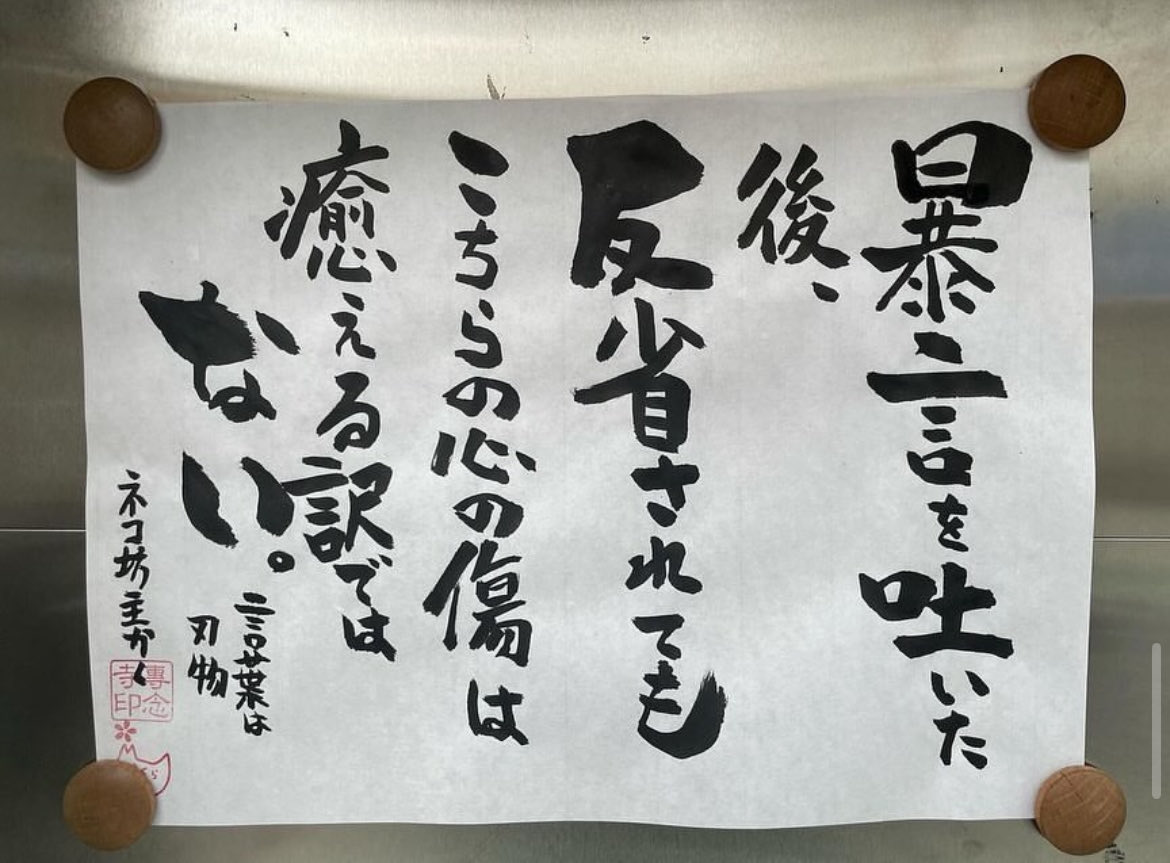 暴言を吐いた
後、
反省されても
こちらの心の傷は
癒える訳では
ない。
言葉は
刃物
ネコ坊主かく
專念
寺印